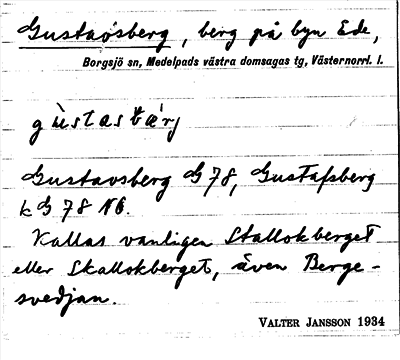 Gustavsberg, berg på byn Ede,
Borgsjö sn, Medelpads västra domsagas tg, Västernorrl. l.
gùstasbærj
Gustavsberg G 78, Gustafsberg
k G 78 NO.
Kallas vanligen Stallokberget
eller Skallokberget, även Berge-
svedjan.
VALTER JANSSON 1934